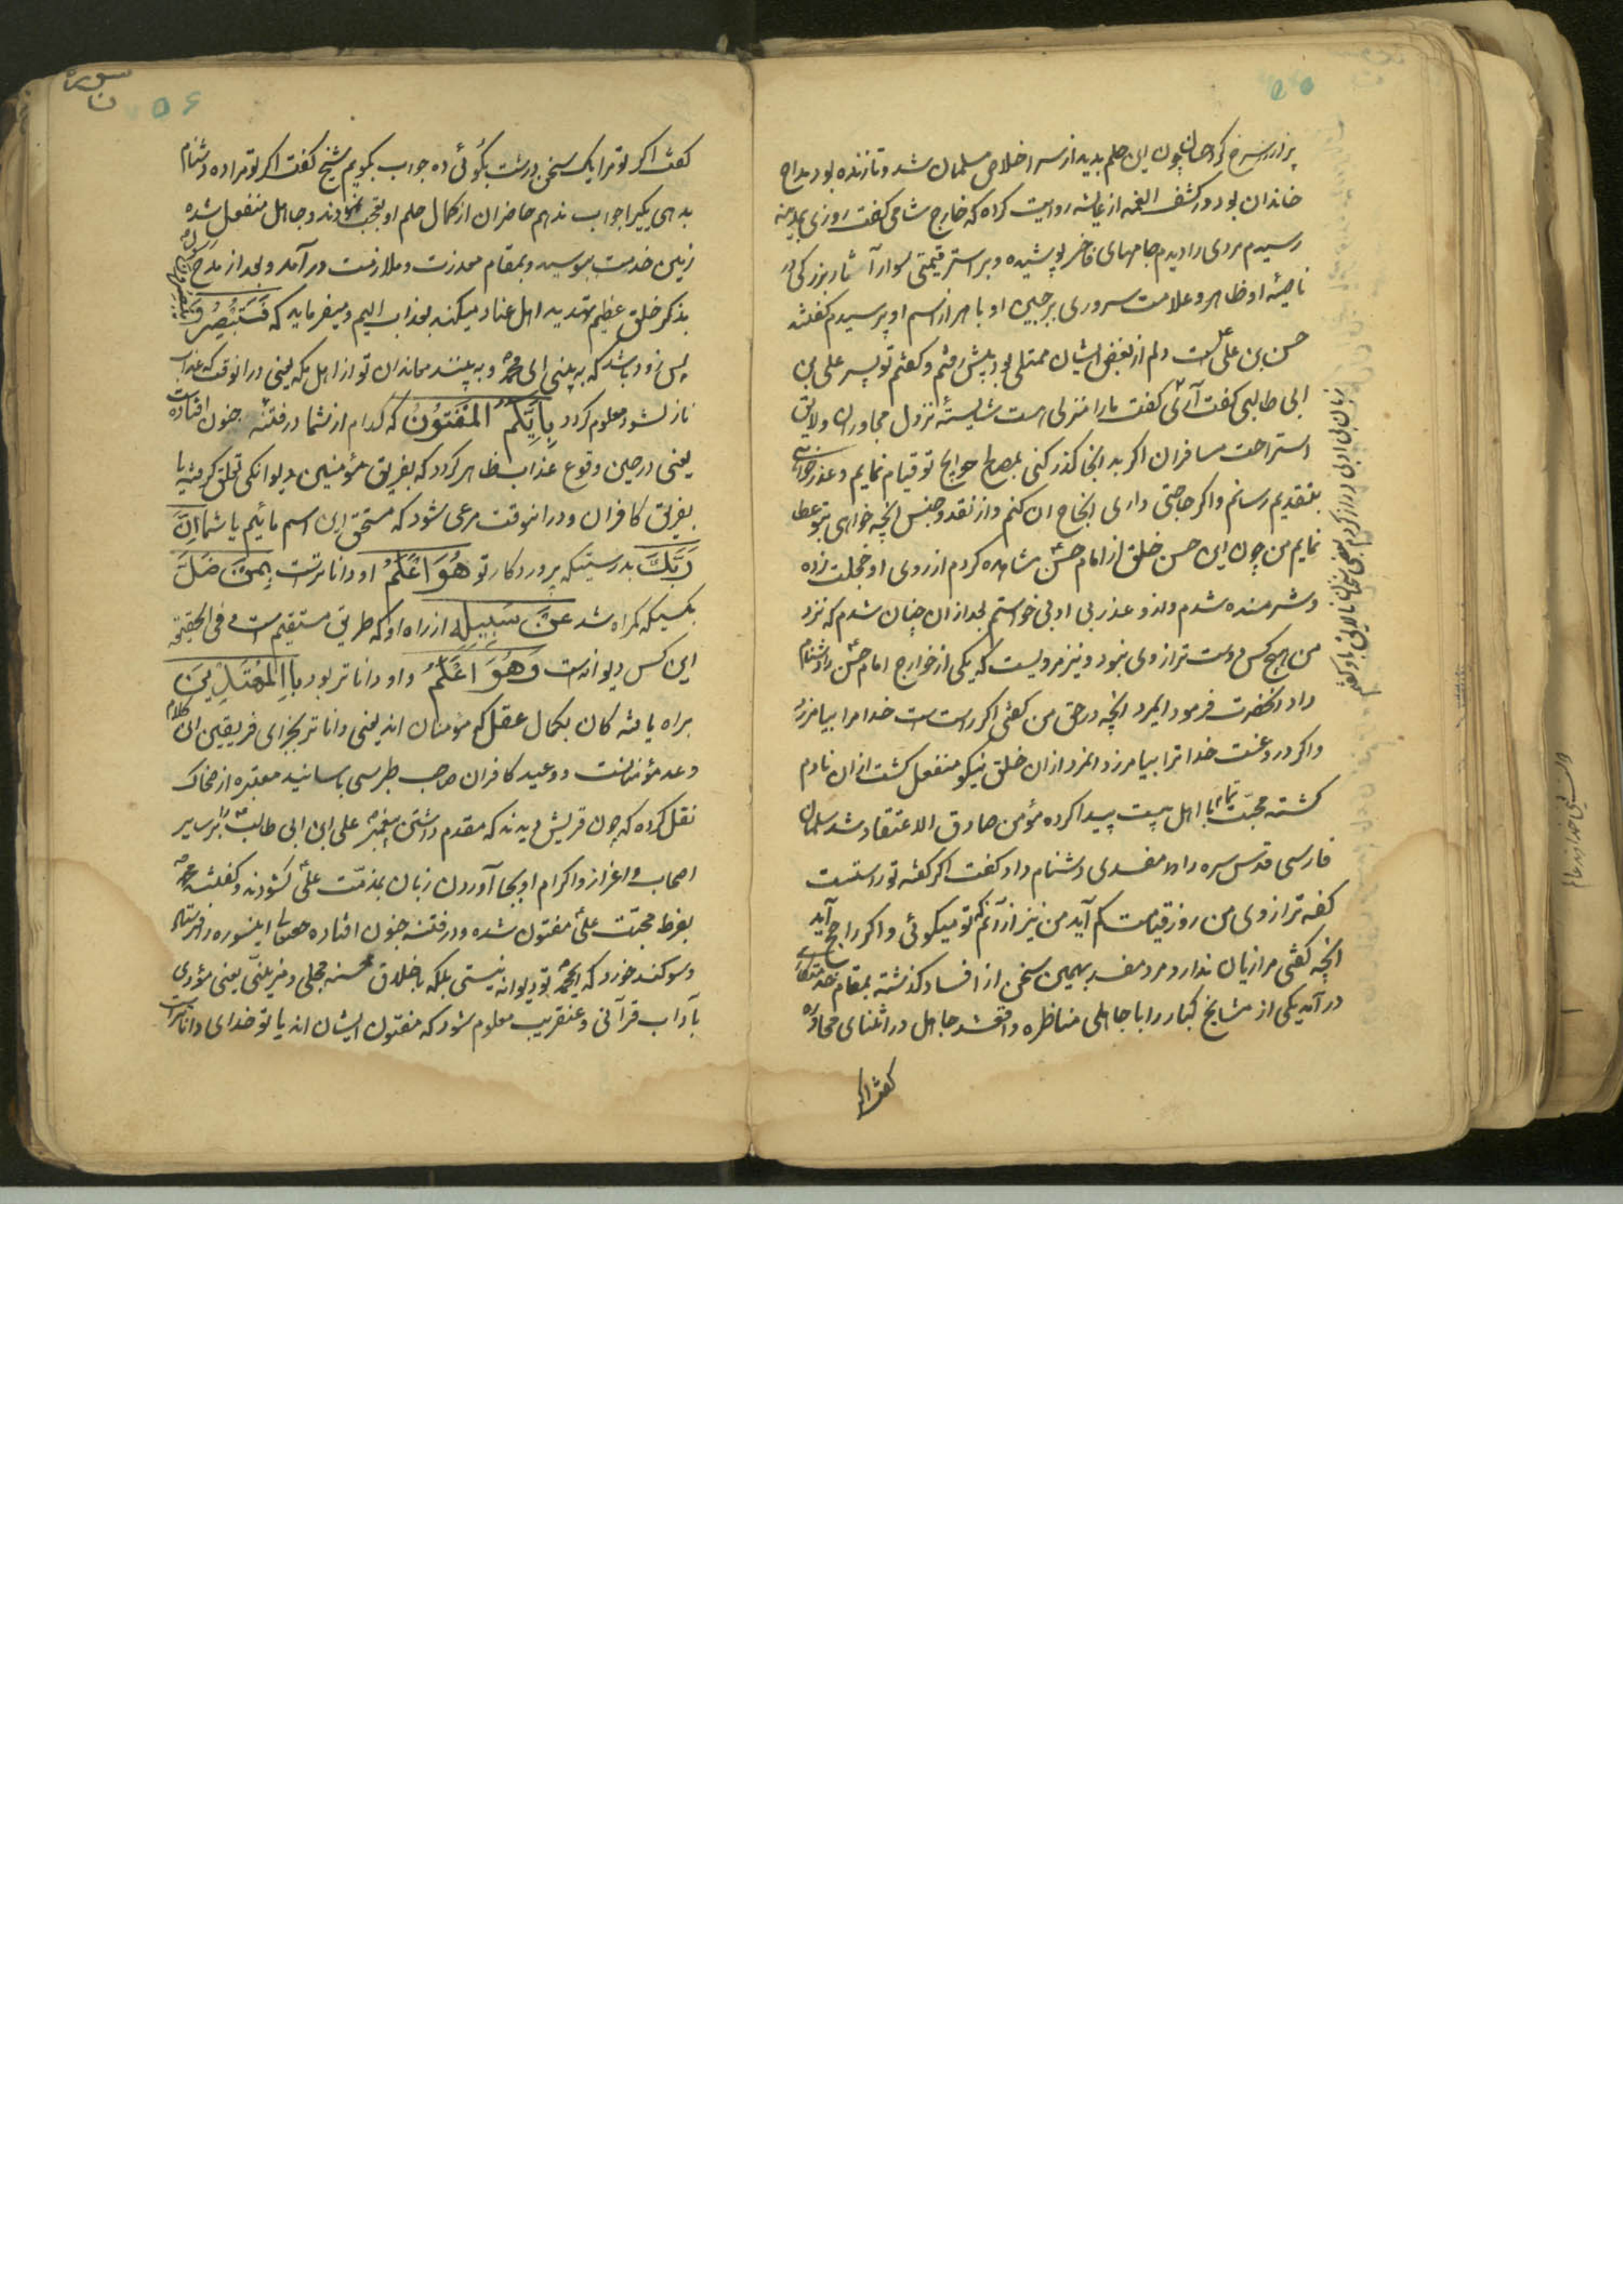 چون این حلم بدید از سر اخلاص مسلمان شد و تا زنده بود مداح
خاندان بود و در کشف الغمه از عایشه روایت کرده که خارج شامی گفت روزی بمدینه
رسیدم مردی را دیدم جامهای فاخر پوشیده و بر استر قیمتی سوار آثار بزرکی در
ناصیهٔ او ظاهر و علامت سروری بر جبین او باهر از اسم او پرسیدم گفتند
حسن بن علی است دلم از بغض ایشان ممتلی بود پیش رفتم و گفتم تو پسر علی بن
ابی طالبی گفت آری گفت ما را منزلی هست شایستهٔ نزول مجاوران و لایق
استراحت مسافران اکر بد انجا گذر کنی بمصالح حوایج تو قیام نمایم و عذرخواهی
بتقدیم رسانم و اکر حاجتی داری انجاح ان کنم و از نقد و جنس انچه خواهی بتو عطا
نمایم من چون این حسن خلق از امام حسن مشاهده کردم از روی او خجلت زده
و شرمنده شدم و از و عذر بی ادبی خواستم بعد ازان چنان شدم که نزد
من هیچ کس دوست تر از وی نبود و نیز مرویست که یکی از خوارج امام حسن را دشنام
داد انحضرت فرمود ایمرد انچه در حق من گفتی اکر راست است خدا مرا بیامرزد
و اکر دروغست خدا ترا بیامرزد انمرد ازان خلق نیکو منفعل کشت ازان نادم
کشته محبت تمام با اهل بیت پیدا کرده مؤمن صادق الاعتقاد شد سلمان
فارسی قدس سره را مفسدی دشنام داد گفت اکر کفه تو راستست
کفه ترازوی من روز قیامت کم آید من نیز از آنم که تو میکوئی و اکر راجح آید
انچه کفتی مرا زیان ندارد مرد مفسد بهمین سخن از افساد کذشته بمقام
در آمد یکی از مشایخ کبار را با جاهلی مناظره واقعشد جاهل در اثنای محاوره
گفت اکر
سوره
ن
۵۶
گفت اکر تو مرا یک سخن درشت بکوئی ده جواب بکویم شیخ گفت اکر تو مرا ده دشنام
بدهی یکیرا جواب ندهم حاضران از کمال حلم او تعجب نمودند و جاهل منفعل شده
زمین خدمت ببوسید و بمقام معذرت و ملازمت در آمد و بعد از مدح رسول
بذکر خلق عظیم تهدید اهل عناد میکند بعذاب الیم و میفرماید که فَسَتُبْصِرُ وَیُبْصِرُونَ
پس زود باشد که به بینی ای محمد و به بینند معاندان تو از اهل مکه یعنی در انوقت که عذاب
نازلشود معلوم کردد بِاَیِّکُمُ المَفْتُونُ که کدام از شما در فتنه جنون افتاده است
یعنی در حین وقوع عذاب ظاهر کردد که بفریق مؤمنین دیوانکی تعلق کرفته یا
بفریق کافران و در انوقت مرعی شود که مستحق این اسم مائیم یا شما اِنَّ
رَبَّکَ بدرستیکه پروردکار تو هُوَ اَعْلَمُ او داناترست بِمَنْ ضَلَّ
بکسیکه کمراه شد عَنْ سَبِیلِهِ از راه او که طریق مستقیم است و فی الحقیقه
این کس دیوانه است وَهُوَ اَعْلَمُ و او داناتر بود بِالْمُهْتَدِینَ
براه یافته کان بکمال عقل که مؤمنان اند یعنی داناتر بجزای فریقین این کلام
وعد مؤمنانست و وعید کافران صاحب طبرسی باسانید معتبره از ضحاک
نقل کرده که چون قریش دیدند که مقدم داشتن پیغمبر علی ابن ابی طالب را بر سایر
اصحاب و اعزاز و اکرام او بجا آوردن زبان بمذمت علی کشودند و گفتند محمد
بفرط محبت علی مفتون شده و در فتنه جنون افتاده حقتعالی اینسوره را فرستاد
و سوکند خورد که ای محمد تو دیوانه نیستی بلکه باخلاق حسنه محلی و مزینی یعنی مؤدی
بآداب قرآنی و عنقریب معلوم شود که مفتون ایشان اند یا تو خدای داناترست